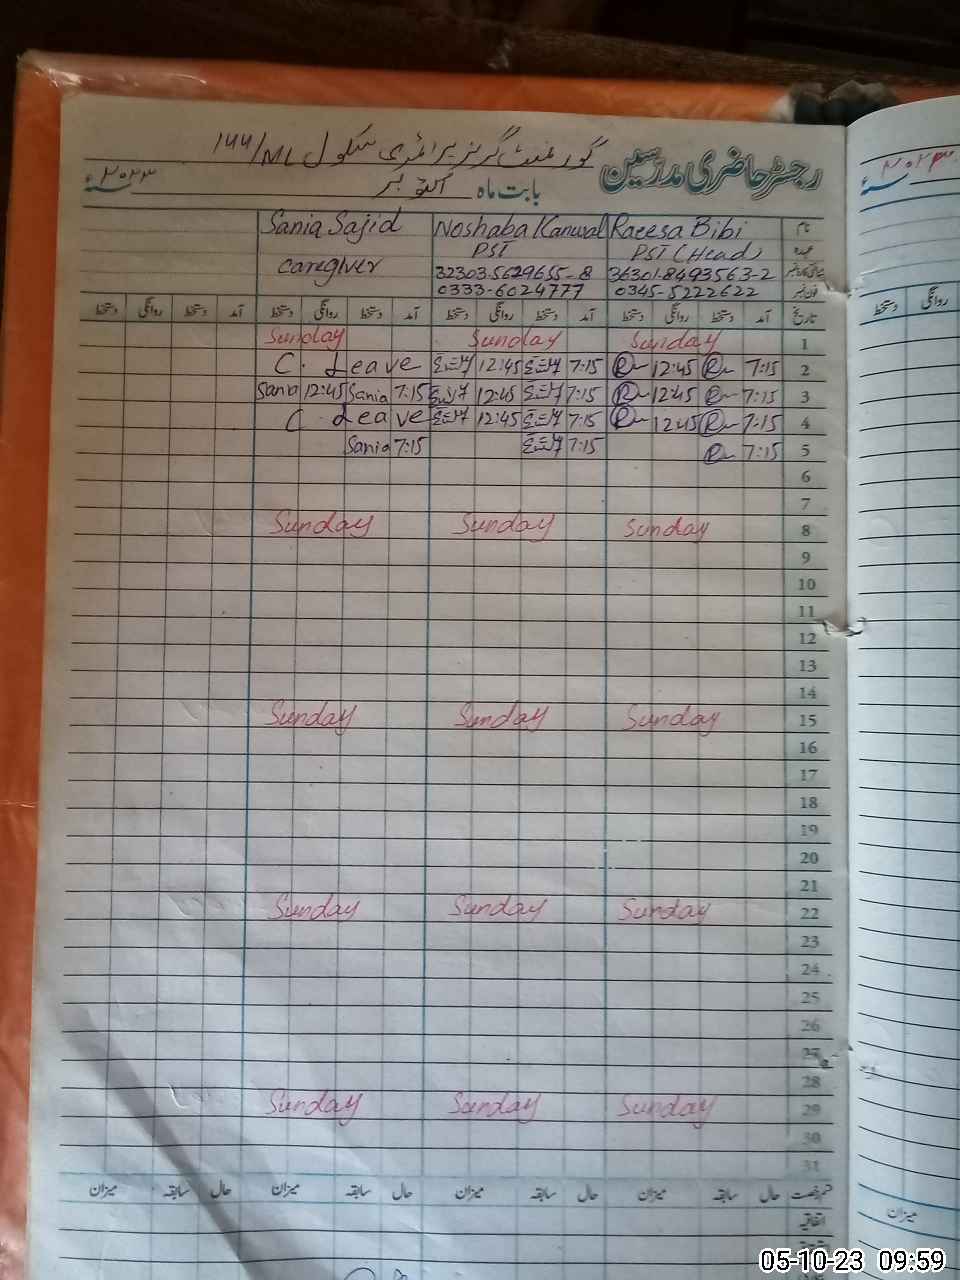 گورنمنٹ گرلز پرائمری سکول ۱۴۴/ML
رجسٹر حاضری مدرسین
بابت ماہ اکتوبر ۲۰۲۳ء
نام Raeesa Bibi Noshaba Kanwal Sania Sajid
عہدہ PST (Head) PST Caregiver
36301-8493563-2 32303-5629655-8
فون نمبر 0345-5222622 0333-6024777
تاریخ آمد دستخط روانگی دستخط آمد دستخط روانگی دستخط آمد دستخط روانگی دستخط آمد دستخط روانگی دستخط
1 Sunday Sunday Sunday
2 7:15 12:45 7:15 12:45 C. Leave
3 7:15 12:45 7:15 12:45 7:15 Sania 12:45 Sania
4 7:15 12:45 7:15 12:45 C Leave
5 7:15 7:15 7:15 Sania
6
7
8 Sunday Sunday Sunday
9
10
11
12
13
14
15 Sunday Sunday Sunday
16
17
18
19
20
21
22 Sunday Sunday Sunday
23
24
25
26
27
28
29 Sunday Sunday Sunday
30
31
قسم رخصت حال سابقہ میزان حال سابقہ میزان حال سابقہ میزان حال سابقہ میزان
اتفاقیہ
۲۰۲۳ء
روانگی دستخط
میزان
05-10-23 09:59